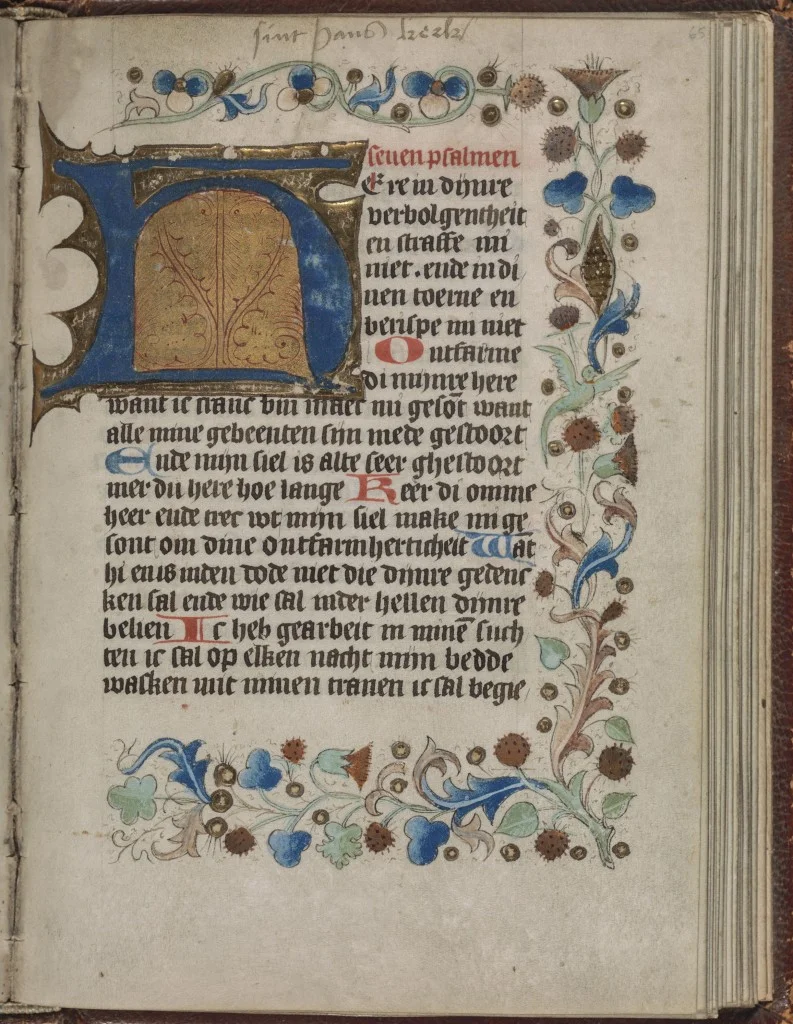 sint pauls kerk
65
seuen psalmen
HEre in dijnre
verbolgentheit
en straffe mi
niet. ende in di
nen toerne en
berispe mi niet
Ontfarme
di mijnre here
want ic cranc bin maer mi gesōt want
alle mine gebeenten sijn mede gestoort
Ende mijn siel is alte seer ghestoort
mer du here hoe lange Keer di omme
heer ende trec wt mijn siel make mi ge
sont om dine ontfarmherticheit Wat
hi en is inden dode niet die dijnre geden
ken sal ende wie sal inder hellen dijnre
belien Ic heb gearbeit in minē such
ten ic sal op elken nacht mijn bedde
wasken mit minen tranen ic sal begie